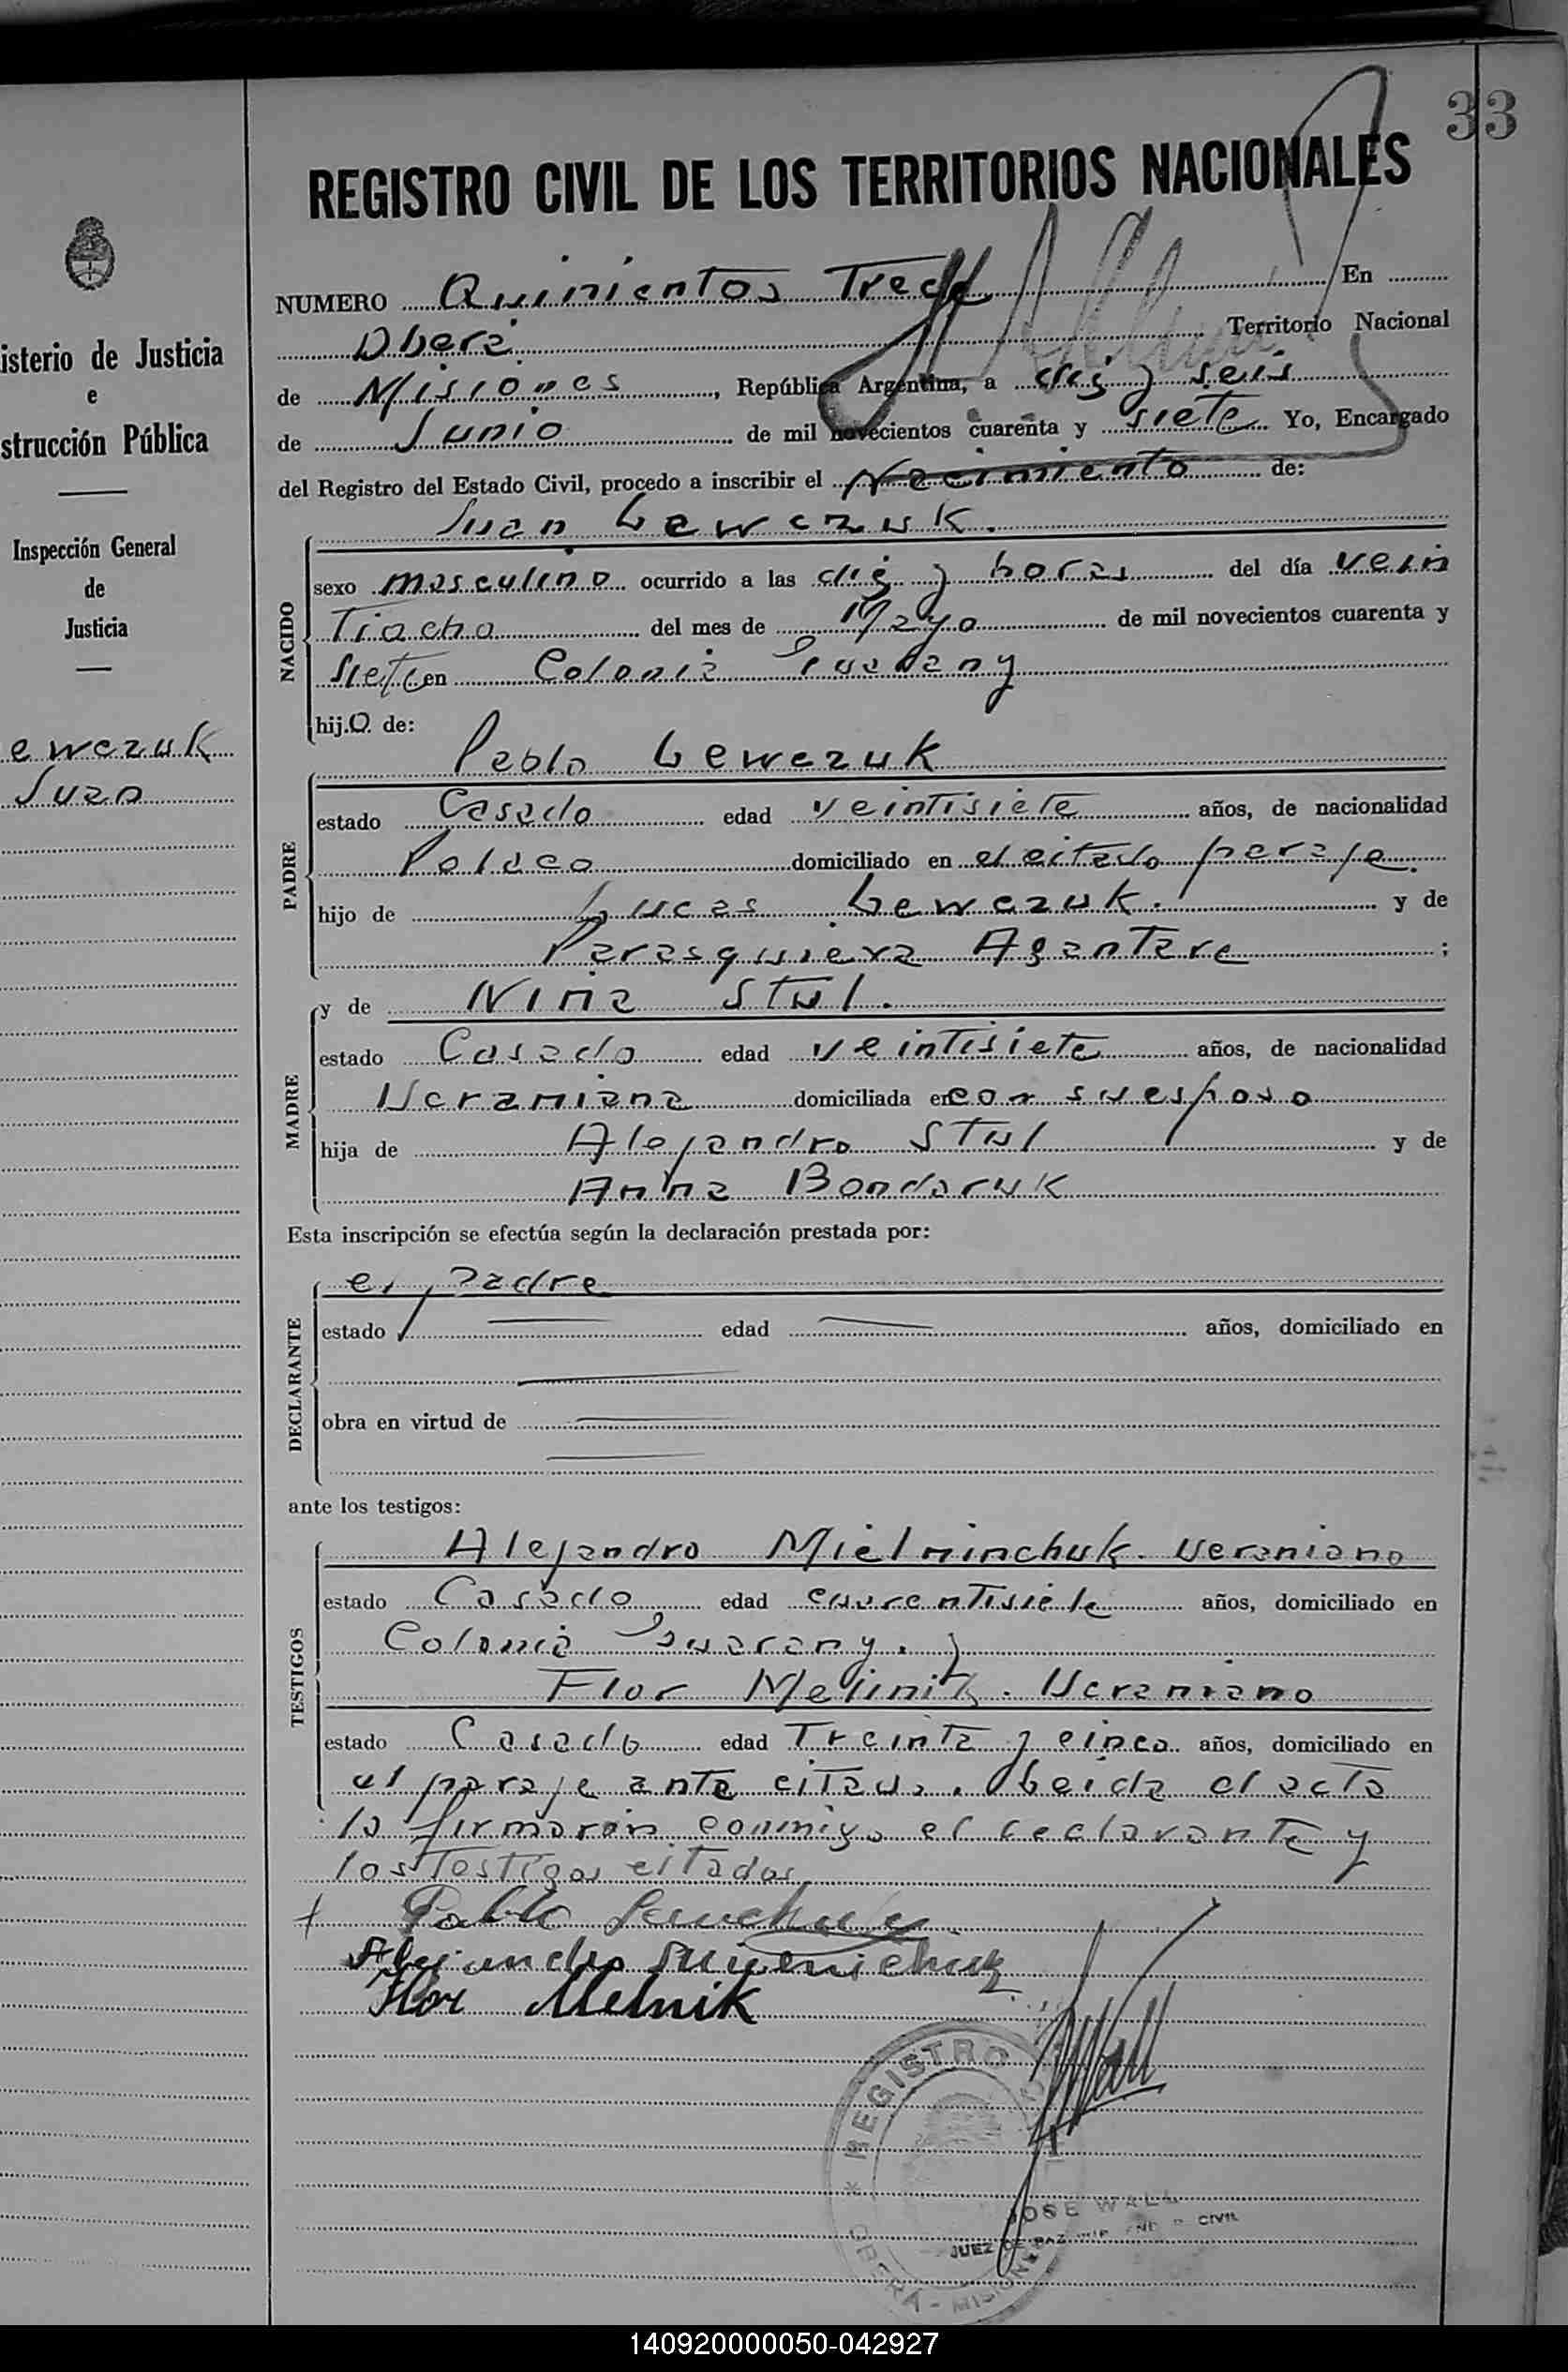 33
REGISTRO CIVIL DE LOS TERRITORIOS NACIONALES
NUMERO Quinientos Trece En
Oberá Territorio Nacional
de Misiones, República Argentina, a diez y seis
de Junio de mil novecientos cuarenta y siete Yo, Encargado
del Registro del Estado Civil, procedo a inscribir el Nacimiento de:
Juan Lewczuk.
NACIDO
sexo masculino ocurrido a las diez y horas del día vein
Tiocho del mes de Mayo de mil novecientos cuarenta y
siete en Colonia Guarany
hij.o de:
Pablo Lewczuk
PADRE
estado Casado edad veintisiete años, de nacionalidad
Polaco domiciliado en el citado paraje.
hijo de Lucas Lewczuk. y de
Parasquieva Agantare ;
y de Nina Stul.
MADRE
estado Casado edad veintisiete años, de nacionalidad
Ucraniana domiciliada en con su esposo
hija de Alejandro Stul y de
Anna Bondaruk
Esta inscripción se efectúa según la declaración prestada por:
DECLARANTE
el Padre
estado edad años, domiciliado en
obra en virtud de
ante los testigos:
TESTIGOS
Alejandro Mielninchuk. Ucraniano
estado Casado edad cuarentisiete años, domiciliado en
Colonia Guarany. y
Flor Melinik. Ucraniano
estado Casado edad Treinta y cinco años, domiciliado en
el paraje ante citado. Leida el acta
la firmaron conmigo el declarante y
los Testigos citados
Pablo
Alejandro
Flor Melnik
REGISTRO
OBERA - MISIONES
JOSE WALL
JUEZ DE PAZ CIVIL
isterio de Justicia
e
strucción Pública
Inspección General
de
Justicia
ewczuk
Juan
140920000050-042927